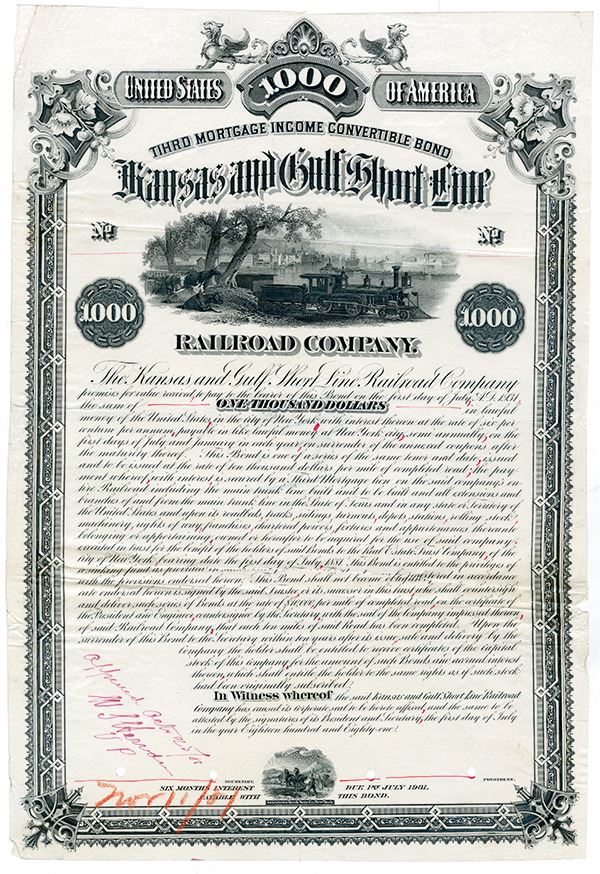 UNITED STATES 1.000 OF AMERICA
THIRD MORTGAGE INCOME CONVERTIBLE BOND
Kansas and Gulf Short Line
No No
1.000 1.000
RAILROAD COMPANY.
The Kansas and Gulf Short Line Railroad Company
promises for value received, to pay to the bearer of this Bond on the first day of July, A.D. 1931,
the sum of ONE THOUSAND DOLLARS in lawful
money of the United States, in the city of New York, with interest thereon at the rate of six per
centum per annum, payable in like lawful money at New York city, semi annually, on the
first days of July and January in each year, on surrender of the annexed coupons, after
the maturity thereof. This Bond is one of a series of the same tenor and date, issued
and to be issued at the rate of ten thousand dollars per mile of completed road, the pay
ment whereof, with interest is secured by a Third Mortgage lien on the said company's en
tire Railroad, including the main trunk line built and to be built and all extensions and
branches of and from the main trunk line in the State of Texas and in any state or Territory of
the United States and upon its roadbeds, tracks, sidings, turnouts, depots, stations, rolling stock,
machinery, rights of way, franchises, chartered powers, fixtures and appurtenances thereunto
belonging or appertaining, owned or hereafter to be acquired for the use of said company;
created in trust for the benefit of the holders of said Bonds to the Real Estate Trust Company, of the
city of New York, bearing date the first day of July, 1881. This Bond is entitled to the privileges of
with the provisions endorsed hereon. This Bond shall not become
cate endorsed hereon is signed by the said Trustee or its successor in this trust, who shall countersign
and deliver such series of Bonds at the rate of $10,000 per mile of completed road, on the certificate of
the President and Engineer, countersigned by the Secretary, with the seal of the Company impressed thereon
of said Railroad Company, that each ten miles of said Road has been completed. Upon the
surrender of this Bond to the Secretary within ten years after its issue, sale and delivery by the
Company, the holder shall be entitled to receive certificates of the Capital
stock of this Company for the amount of such Bonds and accrued interest
thereon, which shall entitle the holder to the same rights as if such stock
had been originally subscribed.
In Witness whereof the said Kansas and Gulf Short Line Railroad
Company has caused its corporate seal to be hereto affixed, and the same to be
attested by the signatures of its President and Secretary, the first day of July
in the year Eighteen hundred and Eighty-one.
SECRETARY. PRESIDENT.
SIX MONTHS INTEREST DUE 1ST JULY 1931.
PAYABLE WITH THIS BOND.